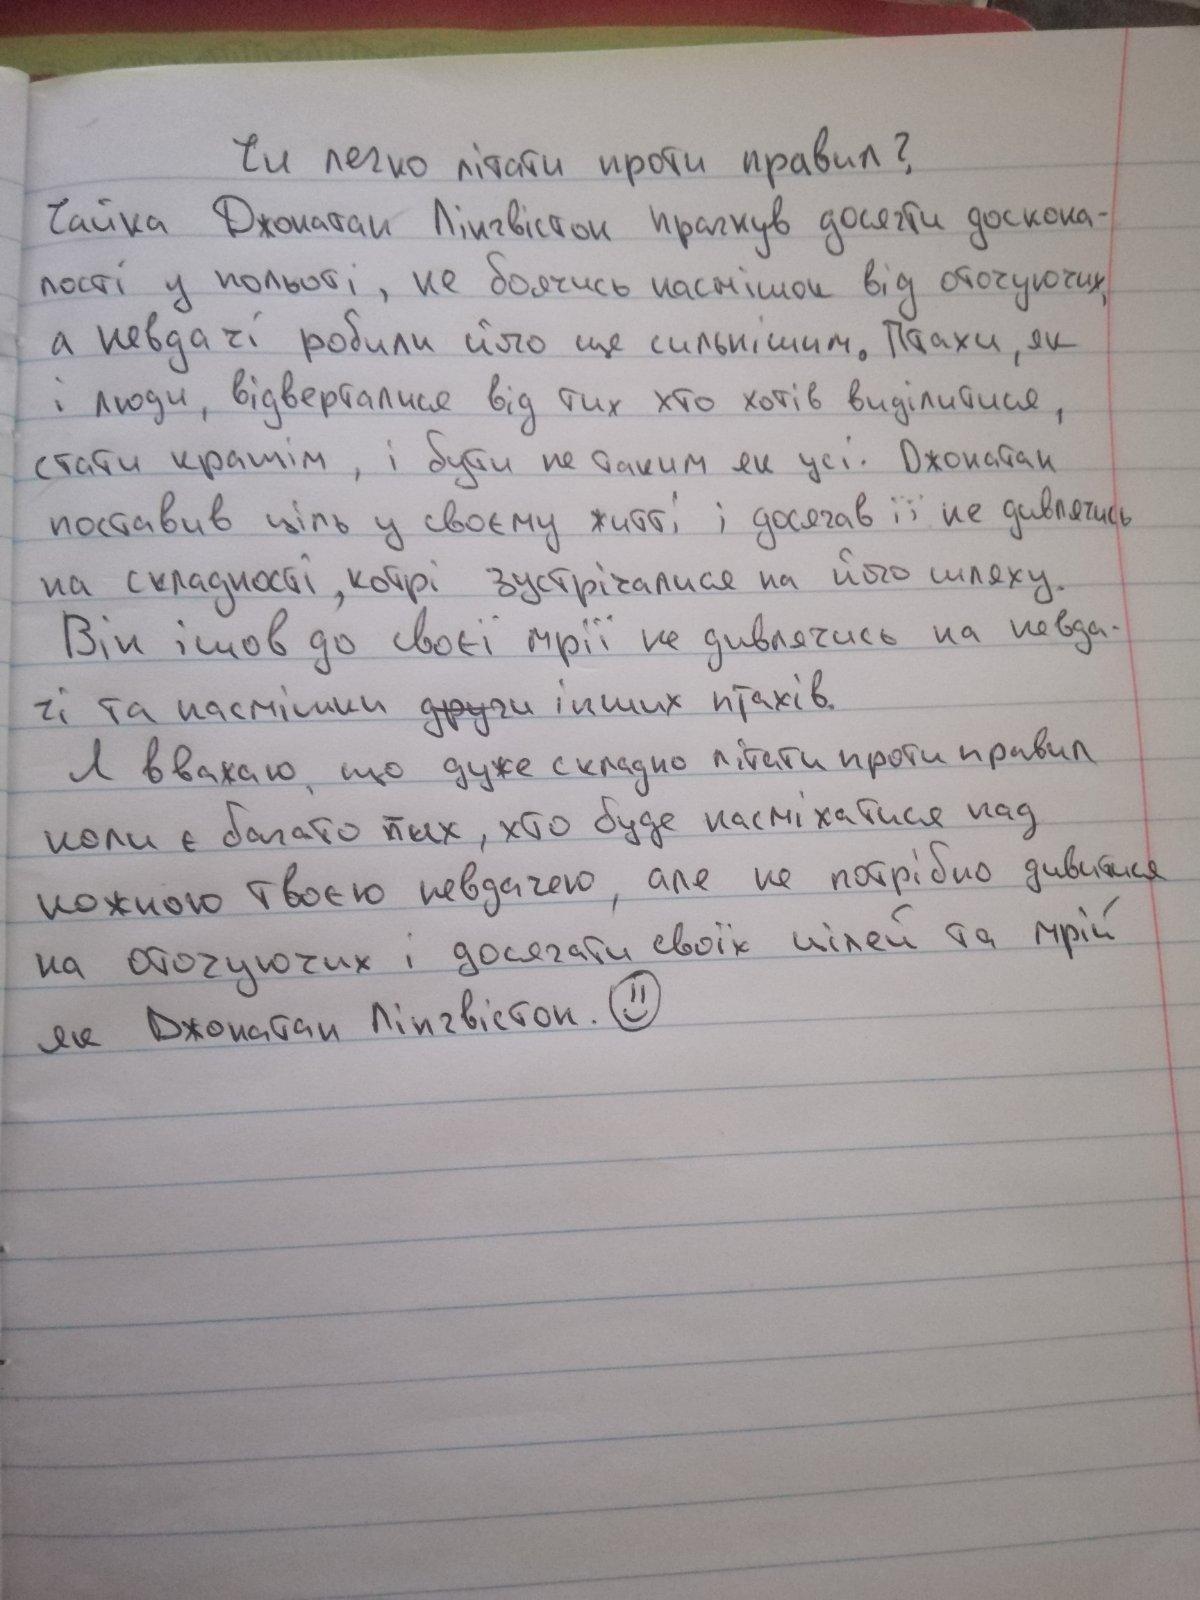 Чи легко літати проти правил?
Чайка Джонатан Лінгвістон прагнув досягти доскона-
лості у польоті, не боячись насмішок від оточуючих,
а невдачі робили його ще сильнішим. Птахи, як
і люди, відверталися від тих хто хотів виділитися,
стати кращім, і бути не таким як усі. Джонатан
поставив ціль у своєму житті і досягав її не дивлячись
на складності, котрі зустрічалися на його шляху.
Він ішов до своєї мрії не дивлячись на невда-
чі та насмішки други інших птахів.
Я вважаю, що дуже складно літати проти правил
коли є багато тих, хто буде насміхатися над
кожною твоєю невдачею, але не потрібно дивитися
на оточуючих і досягати своїх цілей та мрій
як Джонатан Лінгвістон.